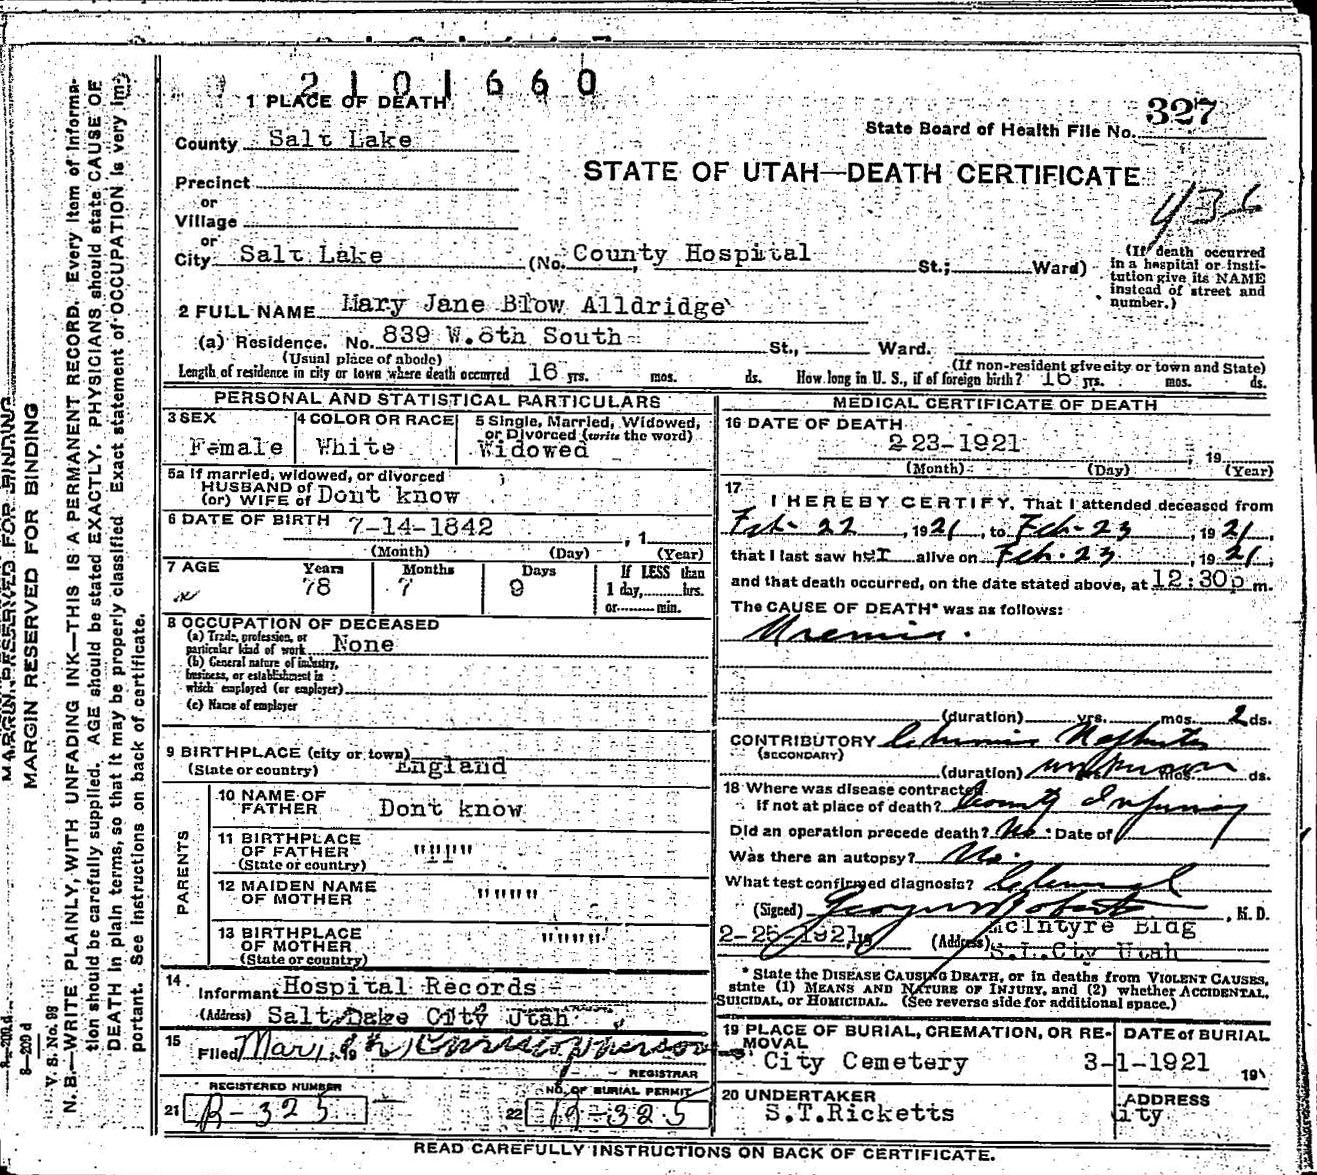 2101660
1 PLACE OF DEATH
County Salt Lake
State Board of Health File No. 327
STATE OF UTAH—DEATH CERTIFICATE
Precinct
or
Village
or
City Salt Lake (No. County Hospital St.; Ward)
(If death occurred
in a hospital or insti-
tution give its NAME
instead of street and
number.)
2 FULL NAME Mary Jane Blow Alldridge
(a) Residence. No. 839 W. 8th South St., Ward.
(Usual place of abode) (If non-resident give city or town and State)
Length of residence in city or town where death occurred 16 yrs. mos. ds. How long in U. S., if of foreign birth? 16 yrs. mos. ds.
PERSONAL AND STATISTICAL PARTICULARS
3 SEX
Female
4 COLOR OR RACE
White
5 Single, Married, Widowed,
or Divorced (write the word)
Widowed
5a If married, widowed, or divorced
HUSBAND of
(or) WIFE of Dont know
6 DATE OF BIRTH 7-14-1842 , 1
(Month) (Day) (Year)
7 AGE Years Months Days If LESS than
78 7 9 1 day, hrs.
or min.
8 OCCUPATION OF DECEASED
(a) Trade, profession, or
particular kind of work None
(b) General nature of industry,
business, or establishment in
which employed (or employer)
(c) Name of employer
9 BIRTHPLACE (city or town)
(State or country) England
PARENTS
10 NAME OF
FATHER Dont know
11 BIRTHPLACE
OF FATHER """"
(State or country)
12 MAIDEN NAME
OF MOTHER """""
13 BIRTHPLACE
OF MOTHER """""
(State or country)
14 Informant Hospital Records
(Address) Salt Lake City Utah
15 Filed Mar 1, 19 Christopherson
REGISTRAR
REGISTERED NUMBER
21 R-325
NO. OF BURIAL PERMIT
22 R-325
MEDICAL CERTIFICATE OF DEATH
16 DATE OF DEATH
2-23-1921 , 19
(Month) (Day) (Year)
17 I HEREBY CERTIFY, That I attended deceased from
Feb- 22 , 1921, to Feb- 23 , 1921,
that I last saw her alive on Feb. 23 , 1921,
and that death occurred, on the date stated above, at 12:30p m.
The CAUSE OF DEATH* was as follows:
Uremia.
(duration) yrs. mos. 2 ds.
CONTRIBUTORY Chronic Nephritis
(SECONDARY)
(duration) unknown mos. ds.
18 Where was disease contracted
if not at place of death? County Infirmary
Did an operation precede death? No. Date of
Was there an autopsy? No.
What test confirmed diagnosis? Chemical
(Signed) George Roberts , M. D.
2-25-1921, 19 (Address) McIntyre Bldg
S.L.Cty Utah
* State the DISEASE CAUSING DEATH, or in deaths from VIOLENT CAUSES,
state (1) MEANS AND NATURE OF INJURY, and (2) whether ACCIDENTAL,
SUICIDAL, or HOMICIDAL. (See reverse side for additional space.)
19 PLACE OF BURIAL, CREMATION, OR RE-
MOVAL
City Cemetery
DATE of BURIAL
3-1-1921 191
20 UNDERTAKER
S.T.Ricketts
ADDRESS
City
READ CAREFULLY INSTRUCTIONS ON BACK OF CERTIFICATE.
MARGIN RESERVED FOR BINDING
MARGIN RESERVED FOR BINDING
8—209 d
V. S. No. 98
N. B.—WRITE PLAINLY, WITH UNFADING INK—THIS IS A PERMANENT RECORD. Every item of informa-
tion should be carefully supplied. AGE should be stated EXACTLY. PHYSICIANS should state CAUSE OF
DEATH in plain terms, so that it may be properly classified. Exact statement of OCCUPATION is very im-
portant. See instructions on back of certificate.